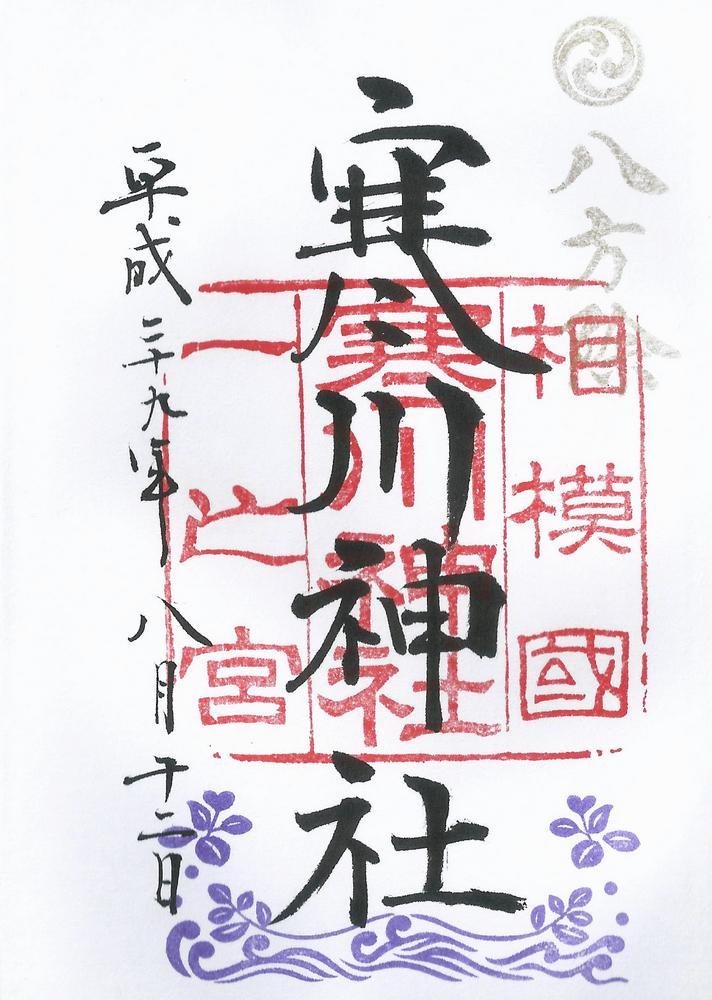 八方除
相模國
寒川神社
一之宮
寒川神社
平成二十九年八月十二日